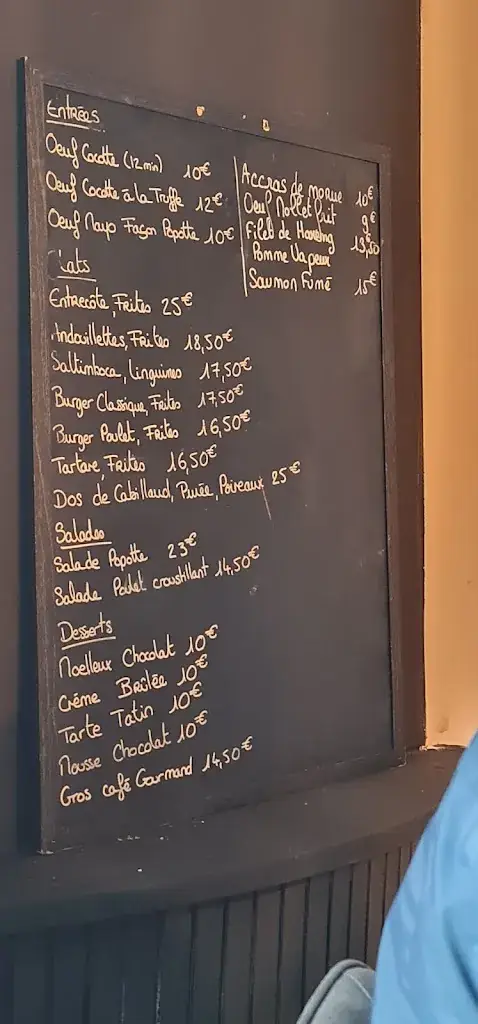 Entrées
Oeuf Cocotte (12min) 10€
Oeuf Cocotte à la Truffe 12€
Oeuf Mayo Façon Popotte 10€
Accras de morue 10€
Oeuf Mollet frit 9€
Filet de Hareng 13,50
Pomme Vapeur
Saumon Fumé 15€
Plats
Entrecôte, Frites 25€
Andouillettes, Frites 18,50€
Saltimboca, Linguines 17,50€
Burger Classique, Frites 17,50€
Burger Poulet, Frites 16,50€
Tartare, Frites 16,50€
Dos de Cabillaud, Purée, Poireaux 25€
Salades
Salade Popotte 23€
Salade Poulet croustillant 14,50€
Desserts
Moelleux Chocolat 10€
Crème Brûlée 10€
Tarte Tatin 10€
Mousse Chocolat 10€
Gros café Gormand 14,50€